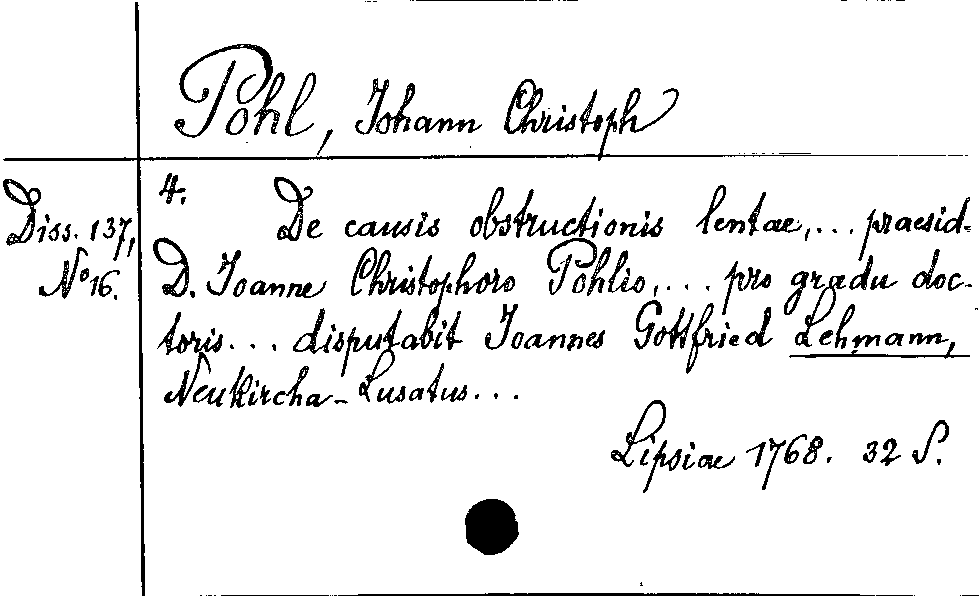 Pohl, Johann Christoph
Diss. 137,
No 16.
4.
De causis obstructionis lentae,... praesid.
D. Joanne Christophoro Pohlio,... pro gradu doc-
toris... disputabit Joannes Gottfried Lehmann,
Neukircha-Lusatus...
Lipsiae 1768. 32 S.